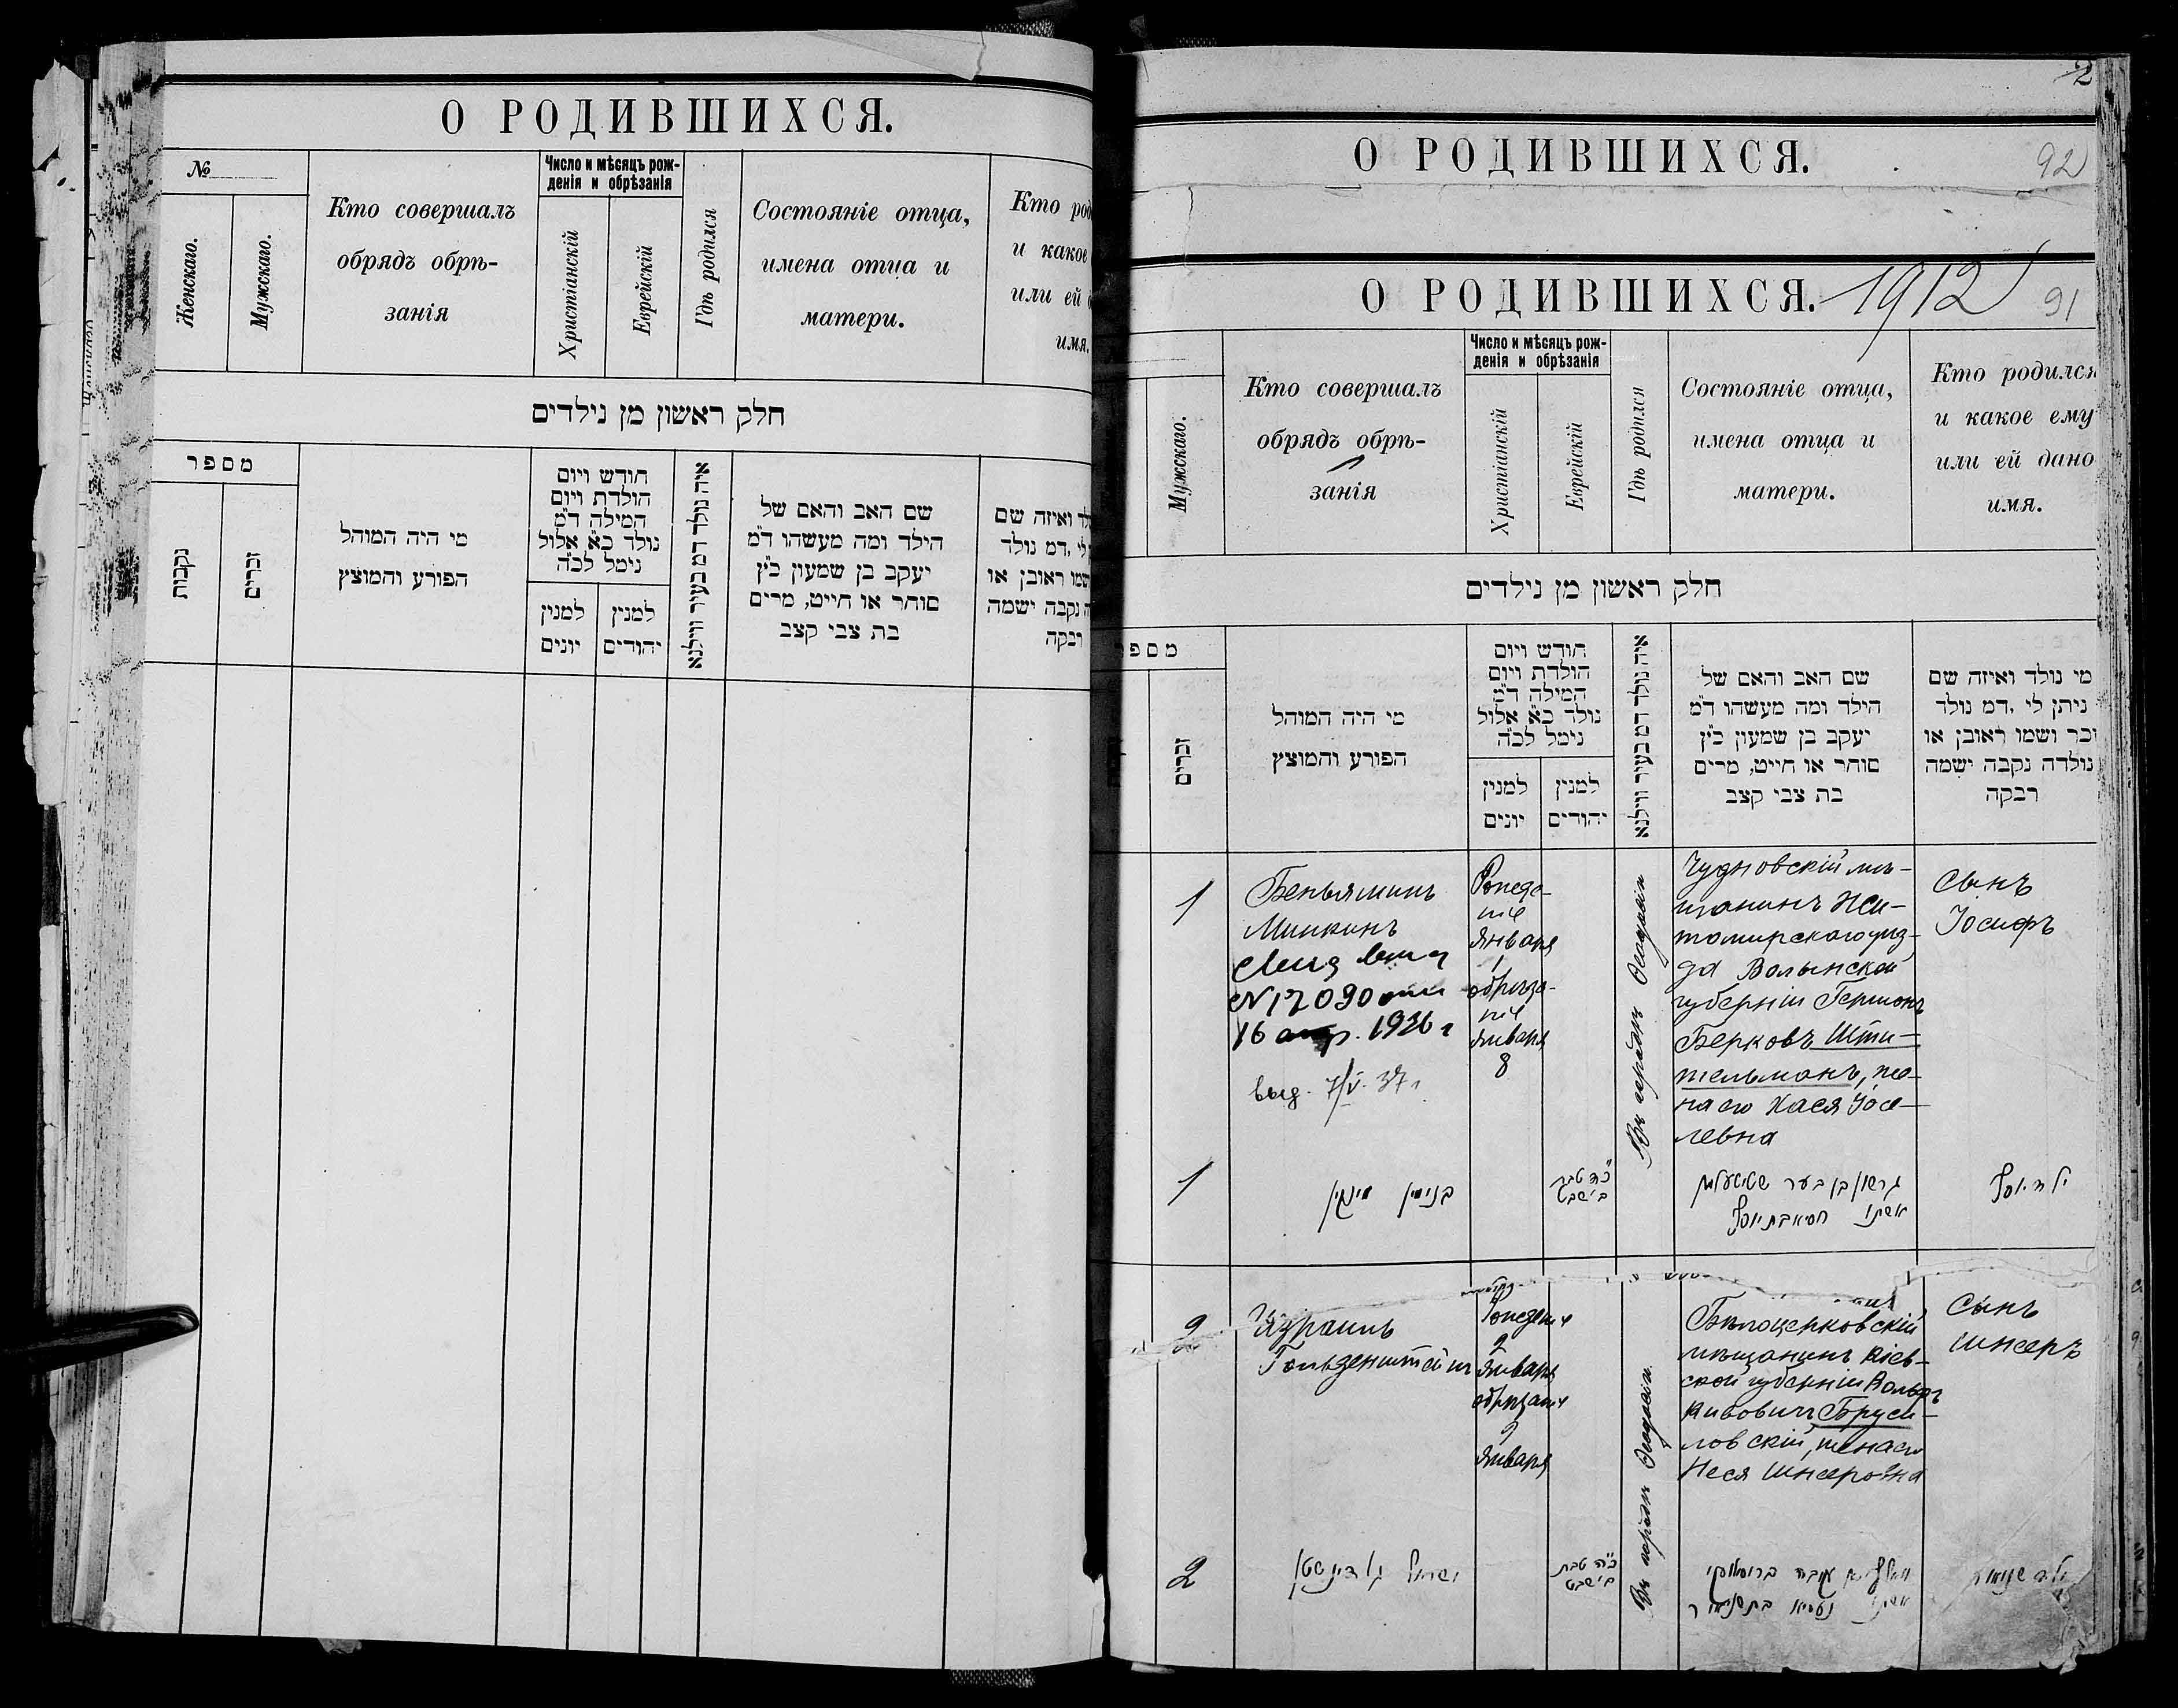 О РОДИВШИХСЯ.
№
Женскаго.
Мужскаго.
Кто совершалъ
обрядъ обрѣ-
занія
Число и мѣсяцъ рож-
денія и обрѣзанія
Христіанскій
Еврейскій
Гдѣ родился
Состояніе отца,
имена отца и
матери.
Кто род
и какое
или ей
имя.
חלק ראשון מן נילדים
מספר
נקבות
זכרים
מי היה המוהל
הפורע והמוצץ
חודש ויום
הולדת ויום
המילה ד"מ
נולד כ"א אלול
נימל לכ"ה
למנין
יונים
למנין
יהודים
איה נולד דמ בעיר ווילנא
שם האב והאם של
הילד ומה מעשהו ד"מ
יעקב בן שמעון כ"ץ
סוחר או חייט, מרים
בת צבי קצב
לד ואיזה שם
לי .דמ נולד
שמו ראובן או
ה נקבה ישמה
רבקה
2
О РОДИВШИХСЯ.
92
О РОДИВШИХСЯ. 1912
91
Мужскаго.
Кто совершалъ
обрядъ обрѣ-
занія
Число и мѣсяцъ рож-
денія и обрѣзанія
Христіанскій
Еврейскій
Гдѣ родился
Состояніе отца,
имена отца и
матери.
Кто родился
и какое ему
или ей дано
имя.
חלק ראשון מן נילדים
מספ
זכרים
מי היה המוהל
הפורע והמוצץ
חודש ויום
הולדת ויום
המילה ד"מ
נולד כ"א אלול
נימל לכ"ה
למנין
יונים
למנין
יהודים
איה נולד דמ בעיר ווילנא
שם האב והאם של
הילד ומה מעשהו ד"מ
יעקב בן שמעון כ"ץ
סוחר או חייט, מרים
בת צבי קצב
מי נולד ואיזה שם
ניתן לי .דמ נולד
זכר ושמו ראובן או
נולדה נקבה ישמה
רבקה
1
Беньяминъ
Минкинъ
N 17090
16 апр. 1936 г
выд. 7/V. 37 г
Рожде-
ніе
января
1
обрѣза-
ніе
января
8
Въ городѣ Ѳеодосіи
Чудновскій мѣ-
щанинъ Жи-
томирскаго уѣз-
да Волынской
губерніи Гершонъ
Берковъ Шти-
тельманъ, же-
на его Хася Іосе-
левна
Сынъ
Іосифъ
1
בנימין מינקין
כ"ה טבת
ב' שבט
גרשון בן בער שטיטעלמן
אשתו חסיא בת יוסף
ילד יוסף
2
Израиль
Гольденштейнъ
Рожденіе
2
января
обрѣзаніе
9
января
Въ городѣ Ѳеодосіи
Бѣлоцерковскій
мѣщанинъ Кіев-
ской губерніи Вольфъ
Кивовичъ Бруси-
ловскій, жена его
Неся Шнееровна
Сынъ
Шнееръ
2
ישראל גולדינשטיין
ב' שבט